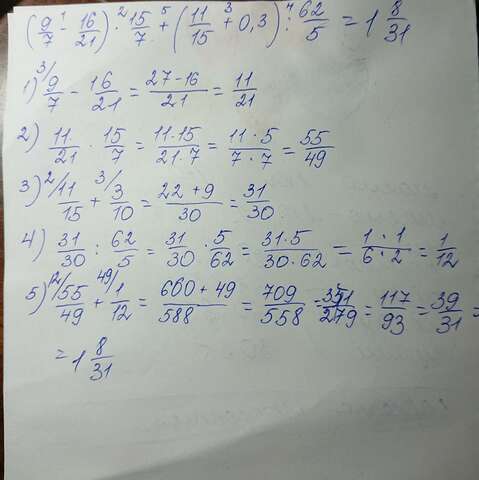 (9/7 ¹- 16/21) ²· 15/7 ⁵+ (11/15 ³+ 0,3) ⁴: 62/5 = 1 8/31
1) ³/9/7 - 16/21 = 27-16/21 = 11/21
2) 11/21 · 15/7 = 11·15/21·7 = 11·5/7·7 = 55/49
3) ²/11/15 + ³/3/10 = 22+9/30 = 31/30
4) 31/30 : 62/5 = 31/30 · 5/62 = 31·5/30·62 = 1·1/6·2 = 1/12
5) ¹²/55/49 + ⁴⁹/1/12 = 660+49/588 = 709/558 = 351/279 = 117/93 = 39/31 =
= 1 8/31